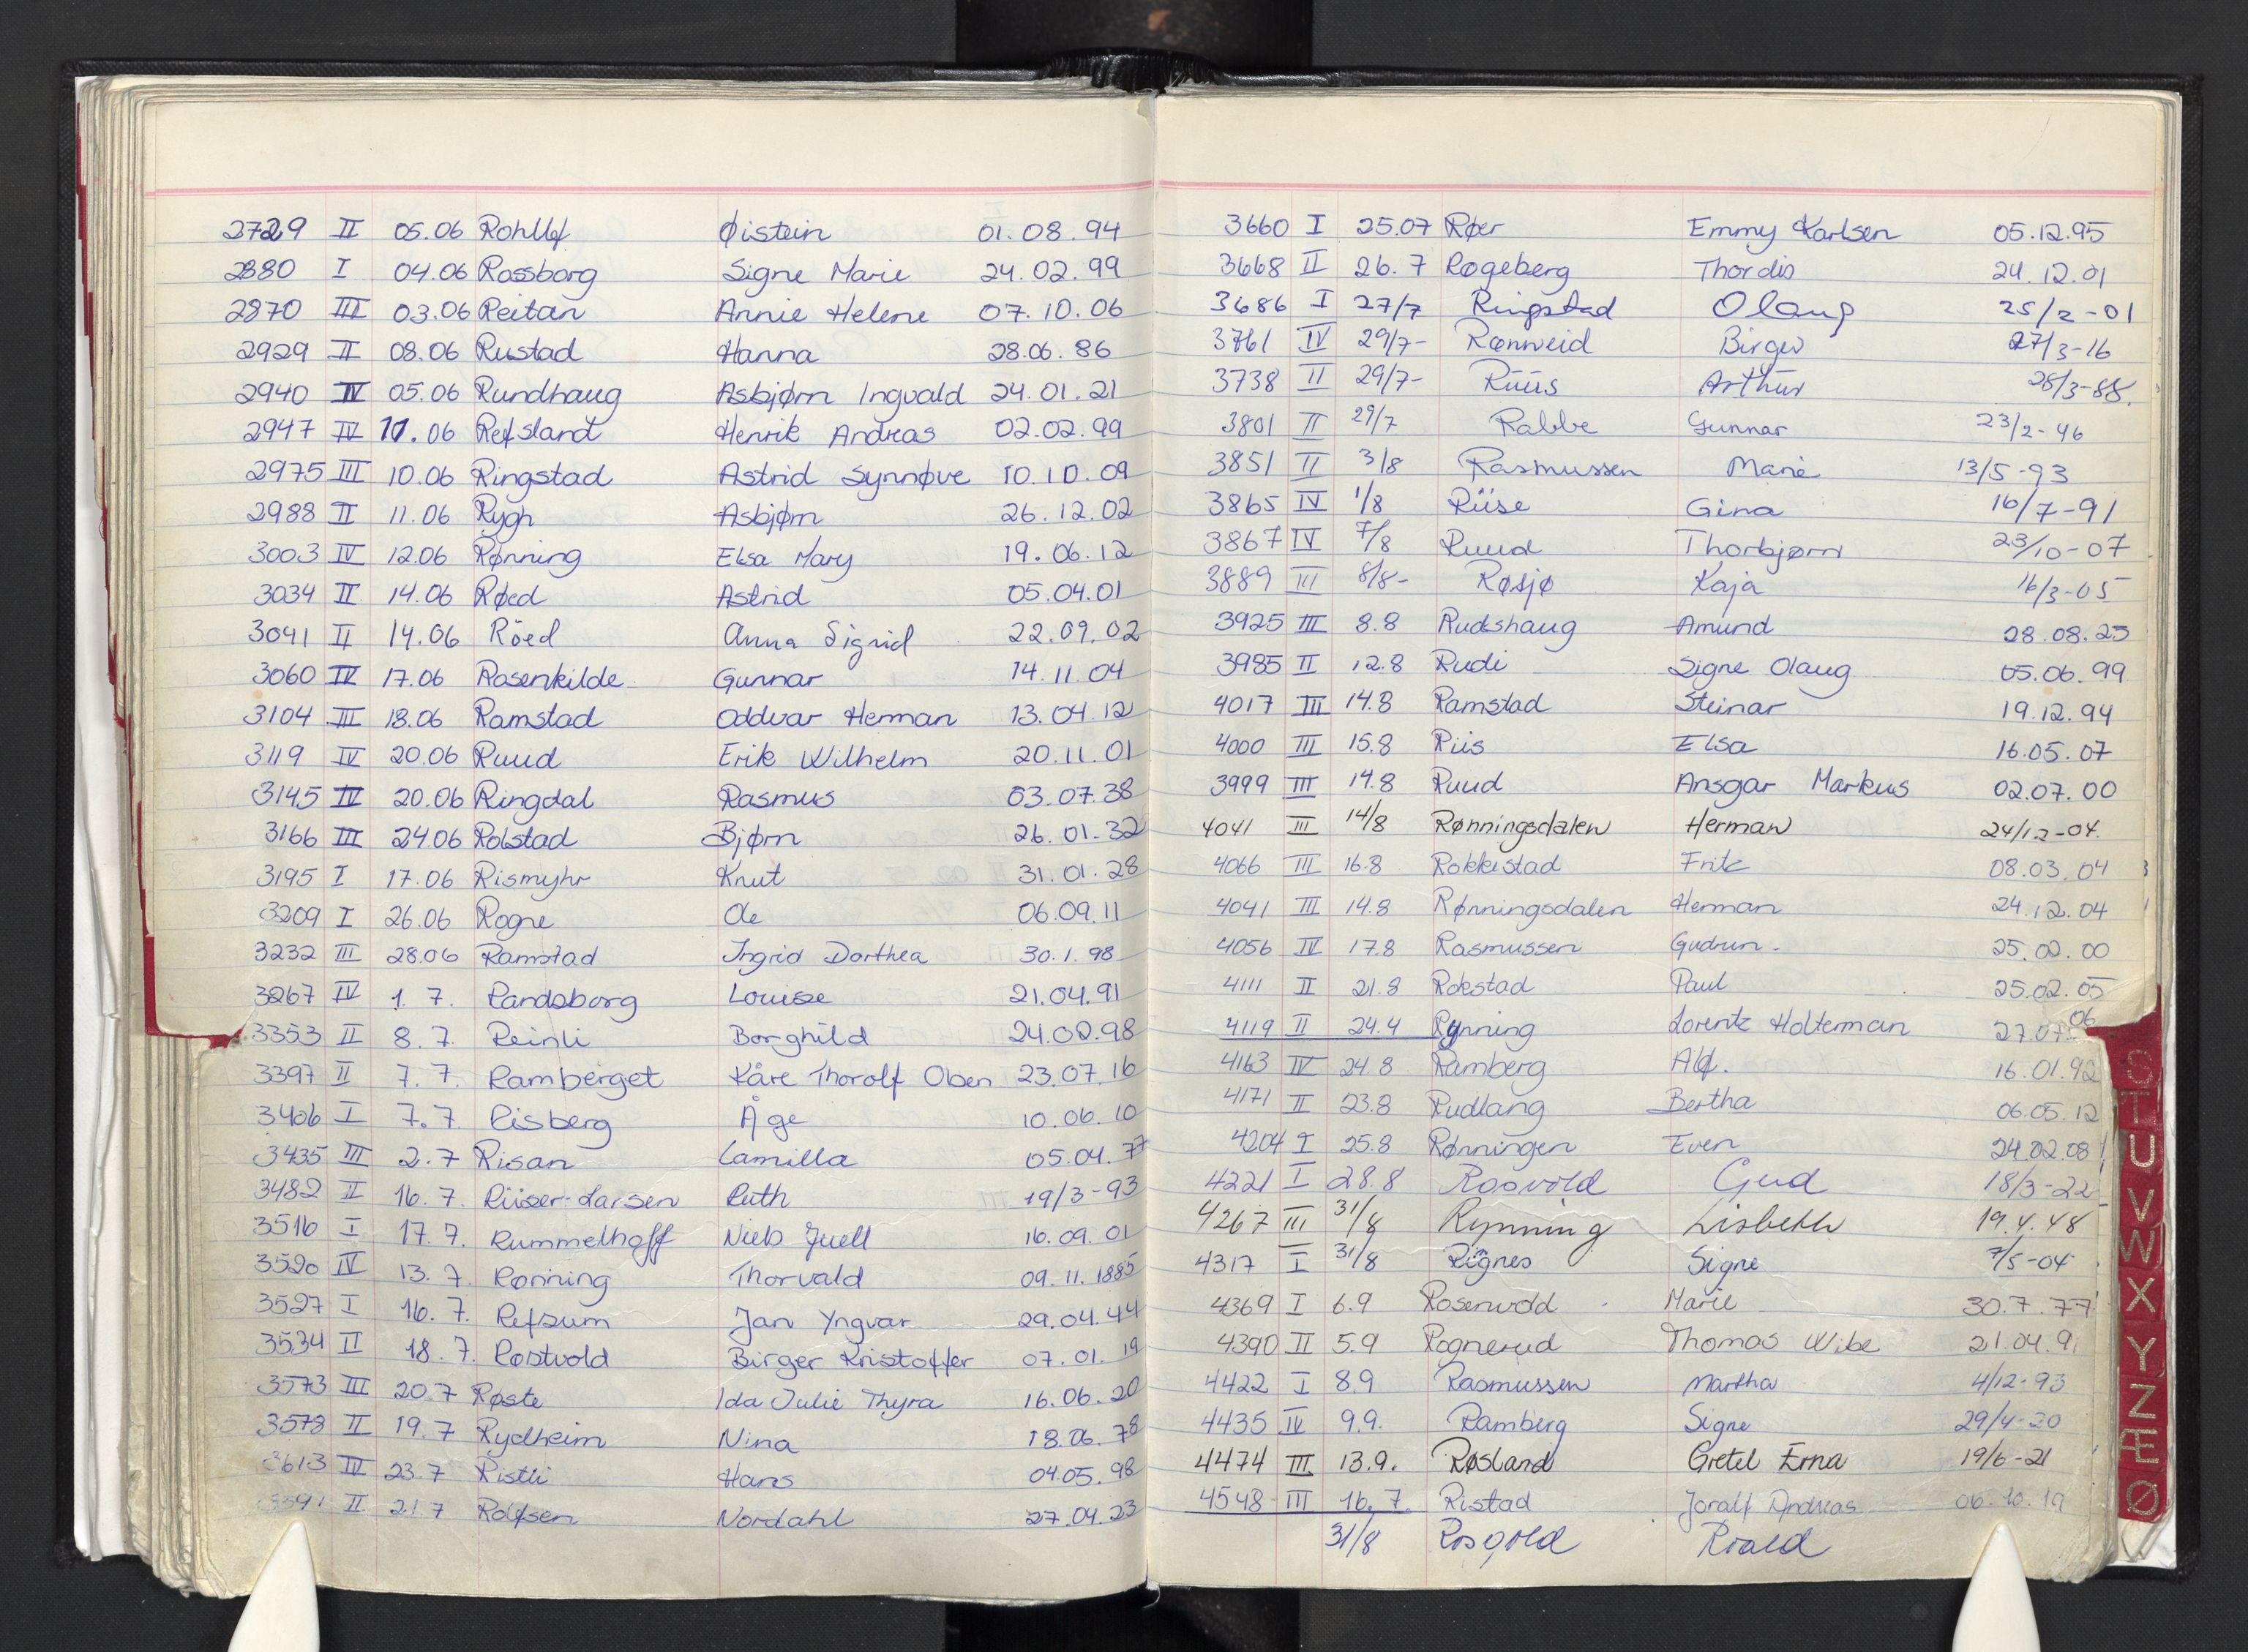 2729 II 05.06 Rohllf Øistein 01.08.94
2880 I 04.06 Rossborg Signe Marie 24.02.99
2870 III 03.06 Reitan Annie Helene 07.10.06
2929 II 08.06 Rustad Hanna 28.06.86
2940 IV 05.06 Rundhaug Asbjørn Ingvald 24.01.21
2947 IV 11.06 Refsland Henrik Andreas 02.02.99
2975 III 10.06 Ringstad Astrid Synnøve 10.10.09
2988 II 11.06 Rygh Asbjørn 26.12.02
3003 IV 12.06 Rønning Elsa Mary 19.06.12
3034 II 14.06 Røed Astrid 05.04.01
3041 II 14.06 Röed Anna Sigrid 22.09.02
3060 IV 17.06 Rosenkilde Gunnar 14.11.04
3104 III 18.06 Ramstad Oddvar Herman 13.04.12
3119 IV 20.06 Ruud Erik Wilhelm 20.11.01
3145 IV 20.06 Ringdal Rasmus 03.07.38
3166 III 24.06 Rolstad Bjørn 26.01.32
3195 I 17.06 Rismyhr Knut 31.01.28
3209 I 26.06 Rogne Ole 06.09.11
3232 III 28.06 Ramstad Ingrid Dorthea 30.1.98
3267 IV 1.7. Randsborg Louise 21.04.91
3353 II 8.7. Reinli Borghild 24.02.98
3397 II 7.7. Ramberget Kåre Thorolf Olsen 23.07.16
3406 I 7.7. Risberg Åge 10.06.10
3435 III 2.7 Risan Camilla 05.04.77
3482 II 16.7. Riiser-Larsen Ruth 19/3-93
3516 I 17.7. Rummelhoff Niels Juell 16.09.01
3520 IV 13.7. Rønning Thorvald 09.11.1885
3527 I 16.7. Refsum Jan Yngvar 29.04.44
3534 II 18.7. Rostvold Birger Kristoffer 07.01.19
3573 III 20.7 Røste Ida Julie Thyra 16.06.20
3578 II 19.7 Rydheim Nina 18.06.78
3613 IV 23.7 Risti Hans 04.05.98
II 21.7 Rolfsen Nordahl 27.04.23
3660 I 25.07 Røer Emmy Karlsen 05.12.95
3668 II 26.7 Rogeberg Thordis 24.12.01
3686 I 27/7 Ringstad Olaug 25/2-01
3761 IV 29/7- Rønneid Birger 27/3-16
3738 II 29/7- Rüüs Arthur 28/3-88.
3801 II 29/7 Rabbe Gunnar 23/2-46
3851 II 3/8 Rasmussen Marie 13/5-93
3865 IV 1/8 Riise Gina 16/7-91
3867 IV 7/8 Ruud Thorbjørn 23/10-07
3889 III 8/8- Røsjø Kaja 16/3-05
3925 III 8.8 Rudshaug Amund 28.08.23
3985 II 12.8 Rudi Signe Olaug 05.06.99
4017 III 14.8 Ramstad Steinar 19.12.94
4000 III 15.8 Riis Elsa 16.05.07
3999 III 14.8 Ruud Ansgar Markus 02.07.00
4041 III 14/8 Rønningsdalen Herman 24/12-04.
4066 III 16.8 Rokkestad Fritz 08.03.04
4041 III 14.8 Rønningsdalen Herman 24.12.04
4056 IV 17.8 Rasmussen Gudrun. 25.02.00
4111 II 21.8 Rokstad Paul 25.02.05
4119 II 24.4 Rynning Lorentz Holterman 27.07.06
4163 IV 24.8 Ramberg Alf. 16.01.92
4171 II 23.8 Rudlang Bertha 06.05.12
4204 I 25.8 Rønningen Even 24.02.08
4221 I 28.8 Rosvold Gud 18/3-22
4267 III 31/8 Rynning Lisbeth 19.4.48
4317 I 31/8 Rignes Signe 7/5-04
4369 I 6.9 Rosenvold Marie 30.7.77
4390 II 5.9 Rognerud Thomas Wibe 21.04.9
4422 I 8.9 Rasmussen Martha 4/12-93
4435 IV 9.9. Ramberg Signe 29/4-20
4474 III 13.9. Røsland Gretel Erna 19/6-21
4548 III 16.7. Ristad Joralf Andreas 06.10.19
31/8 Rosvold Roald
S
T
U
V
W
X
Y
Z
Æ
Ø